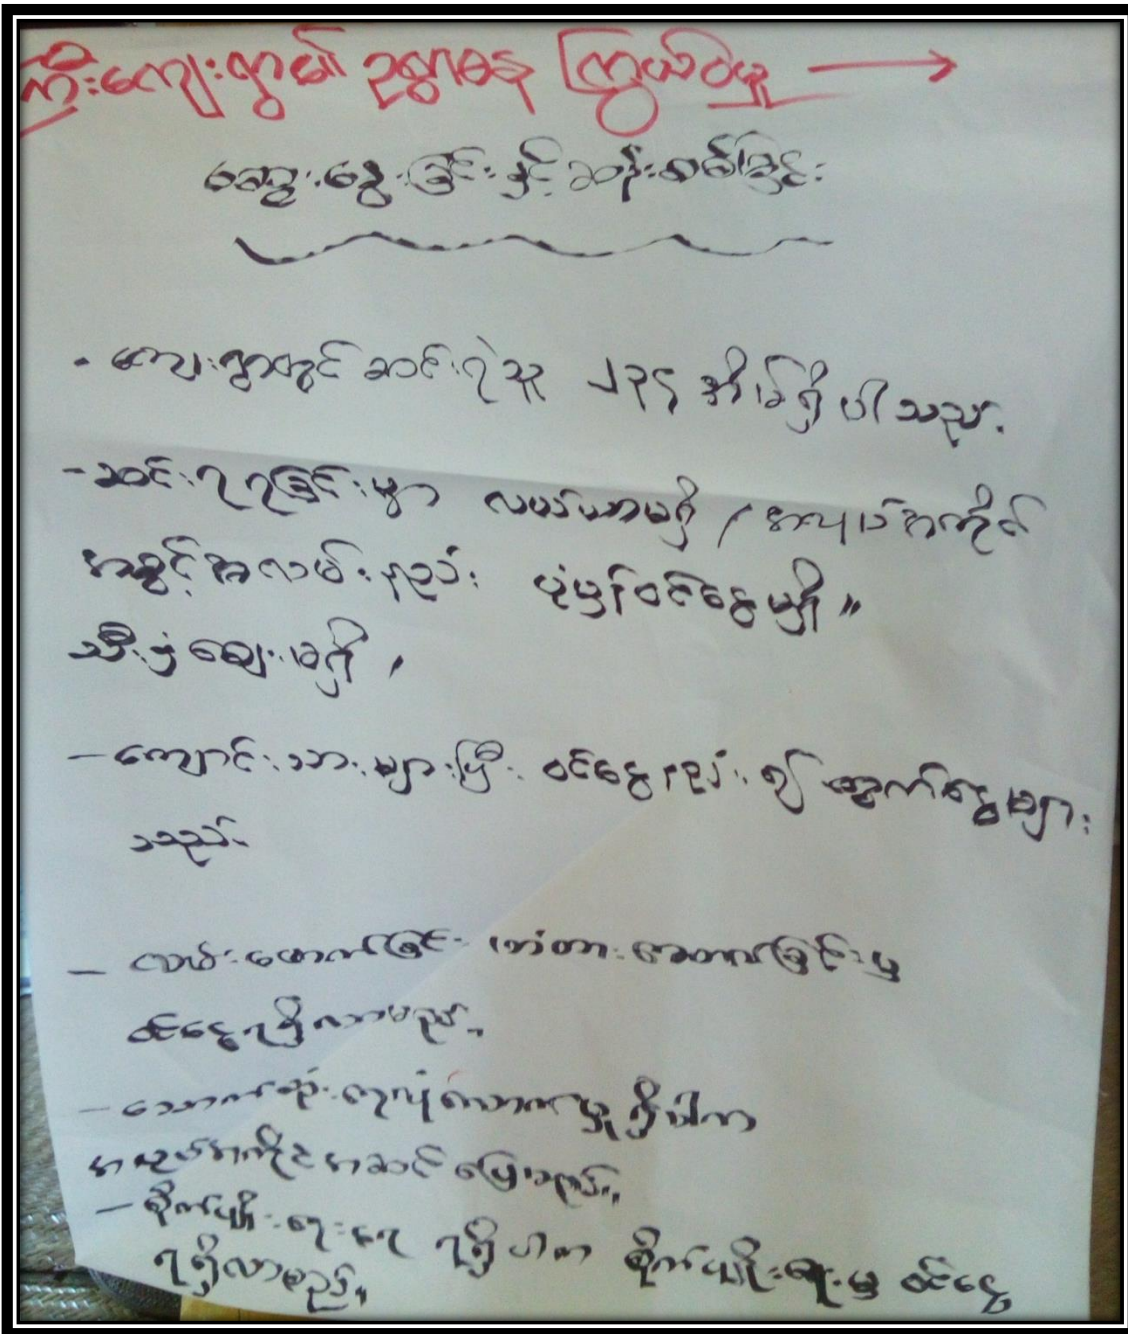 ကြိုးကျေးရွာ၏ ဥစ္စာဓန ကြွယ်ဝမှု →
ဆွေးနွေးခြင်းနှင့်ဆန်းစစ်ခြင်း
• ကျေးရွာတွင် ဆင်းရဲသူ ၂၃၄ အိမ်ရှိပါသည်.
- ဆင်းရဲရခြင်းမှာ လယ်ယာမရှိ / အလုပ်အကိုင်
အခွင့်အလမ်းနည်း ပုံမှန်ဝင်ငွေမရှိ။
သီးနှံဈေးမရှိ ,
- ကျောင်းသားများပြီး ဝင်ငွေနည်း၍ ထွက်ငွေများ
သည်.
- လမ်းဖောက်ခြင်း တံတားဆောက်ခြင်းမှ
ဝင်ငွေရရှိလာမည်.
- သောက်သုံးရေလုံလောက်မှု ရှိပါက
အလုပ်အကိုင်အဆင်ပြေသည်။
- စိုက်ပျိုးရေးရေ ရရှိပါက စိုက်ပျိုးရေးမှ ဝင်ငွေ
ရရှိလာမည်။